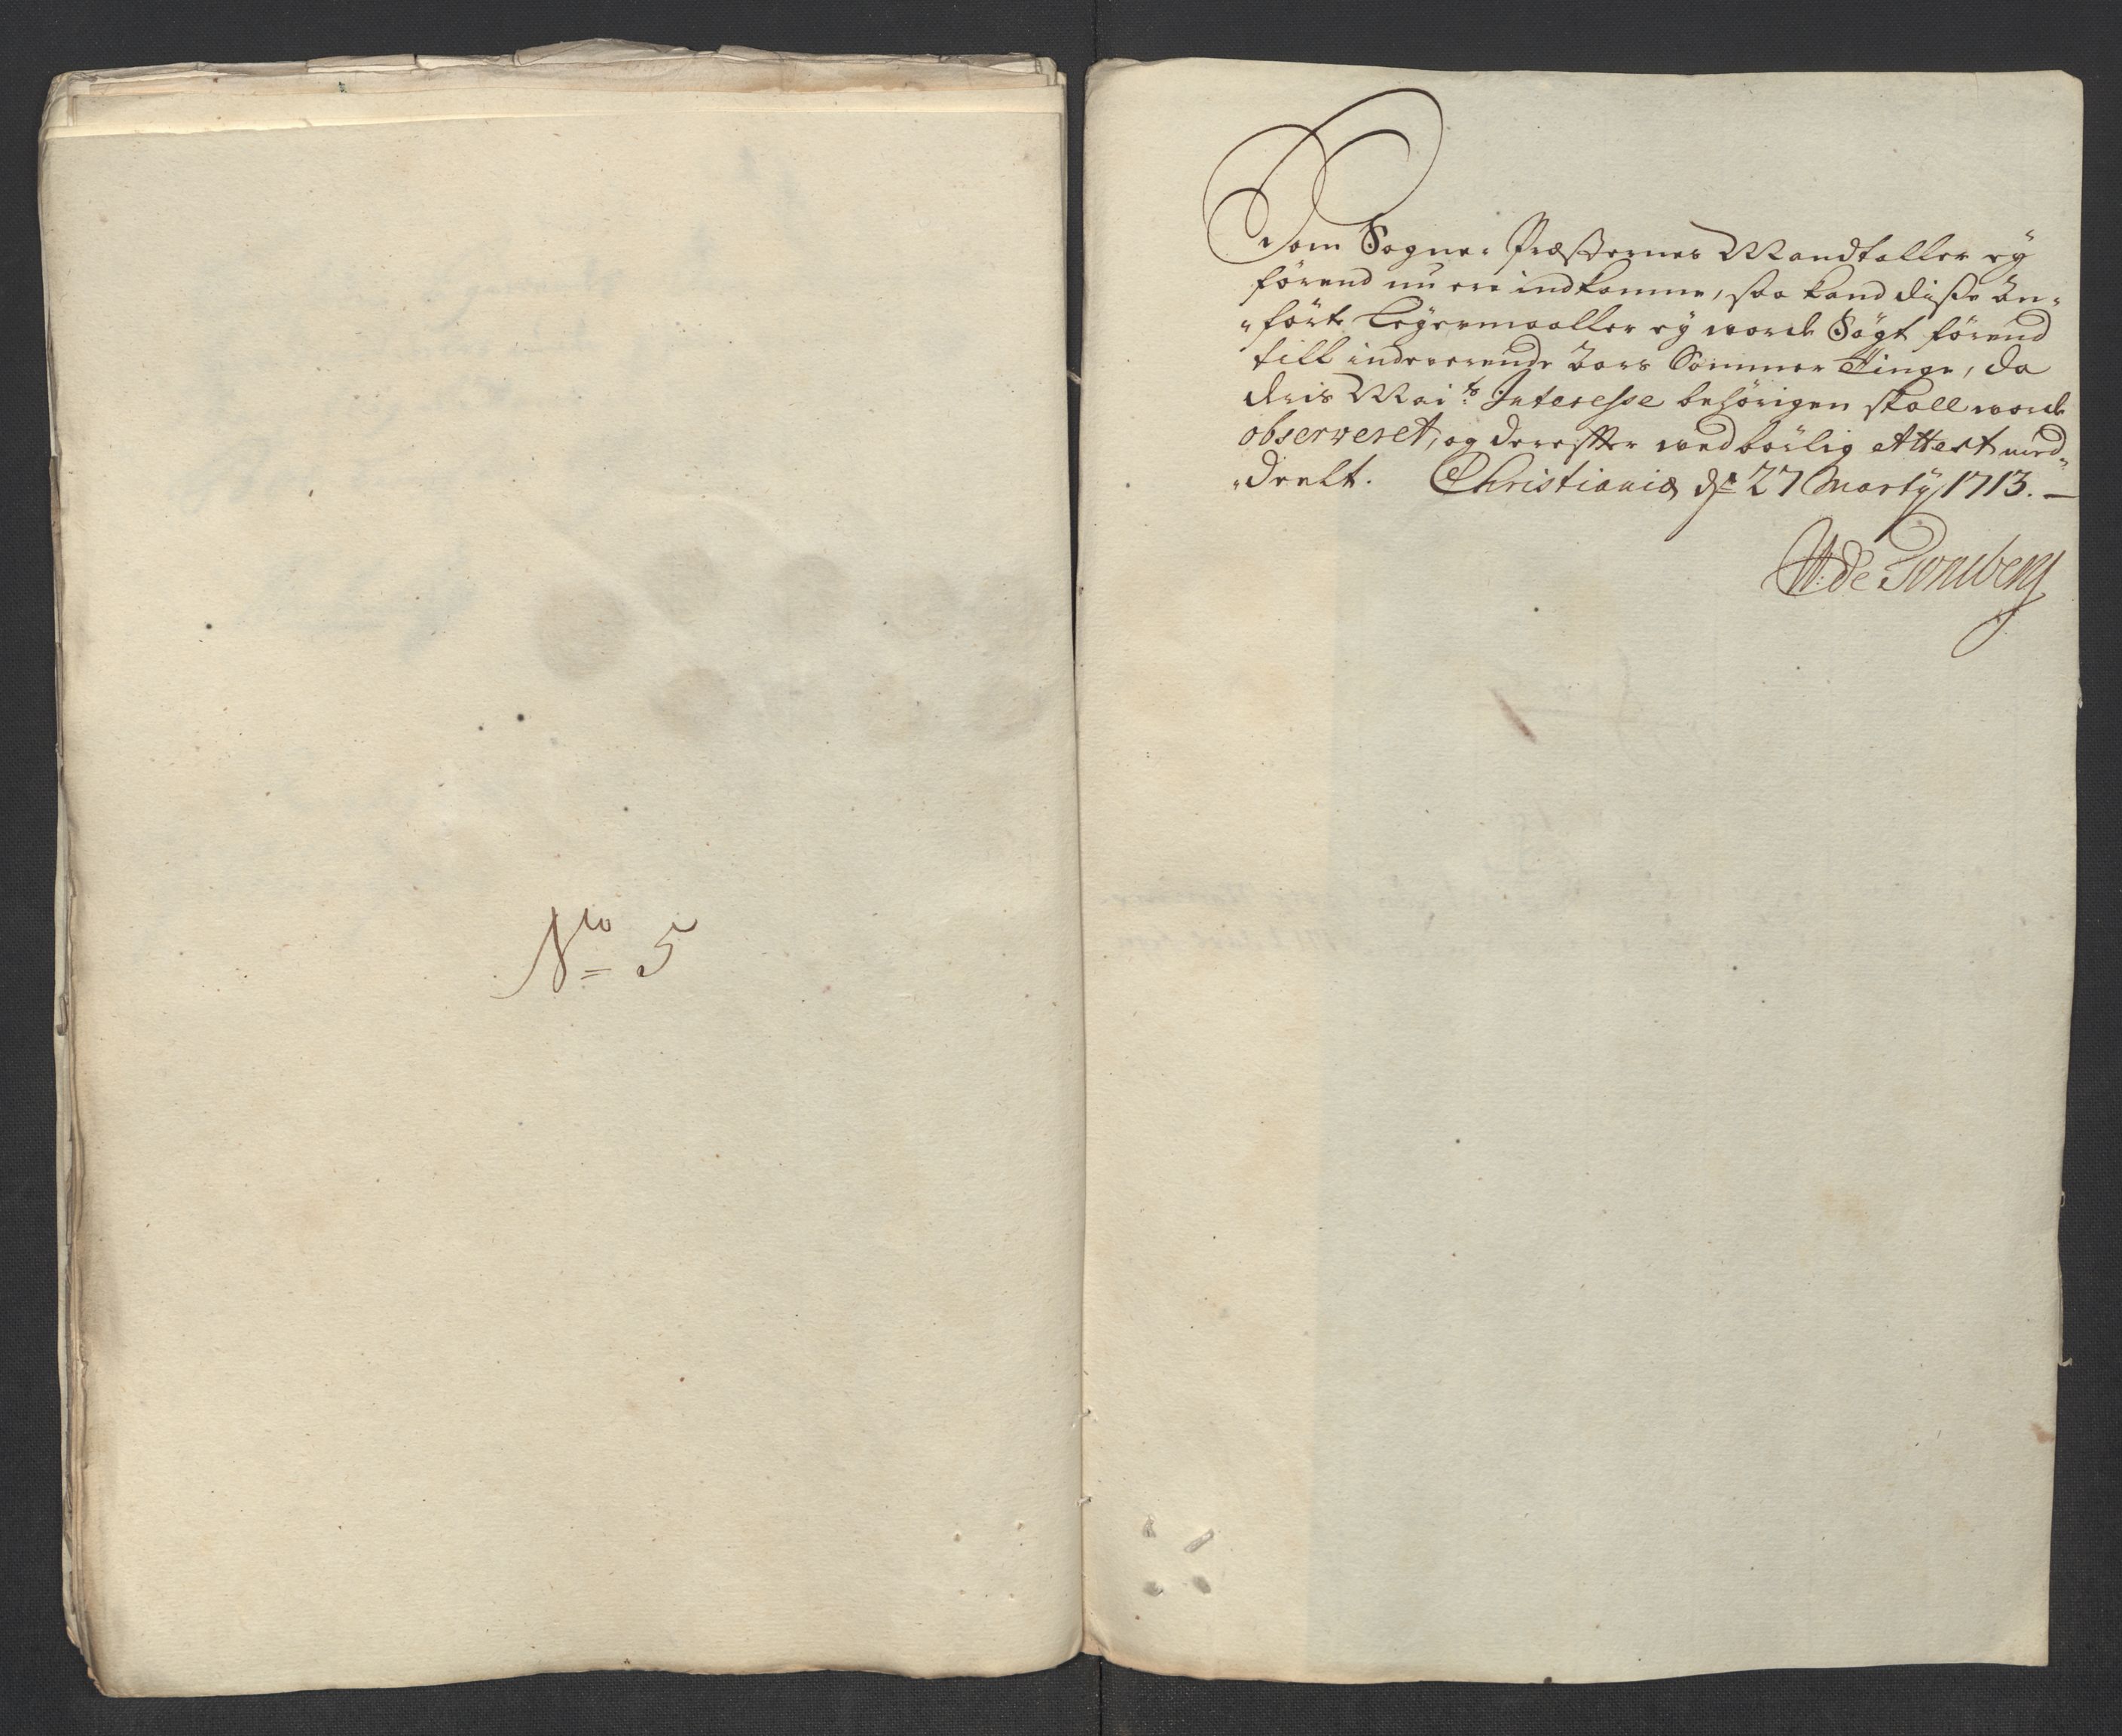 No 5
Som Sogne-Præsternes Mandtaller ey
förend nu ere indkomne, saa kand disse an-
"förte Legermaaller ey worde Sögt förend
till indewerende Aars Sommer Tinge, da
deris Maits Interesse behörigen skall worde
observeret, og derefter wedbörlig Attest med-
"deelt. Christiania dn 27 Marty 1713. —
W: de Tonsberg